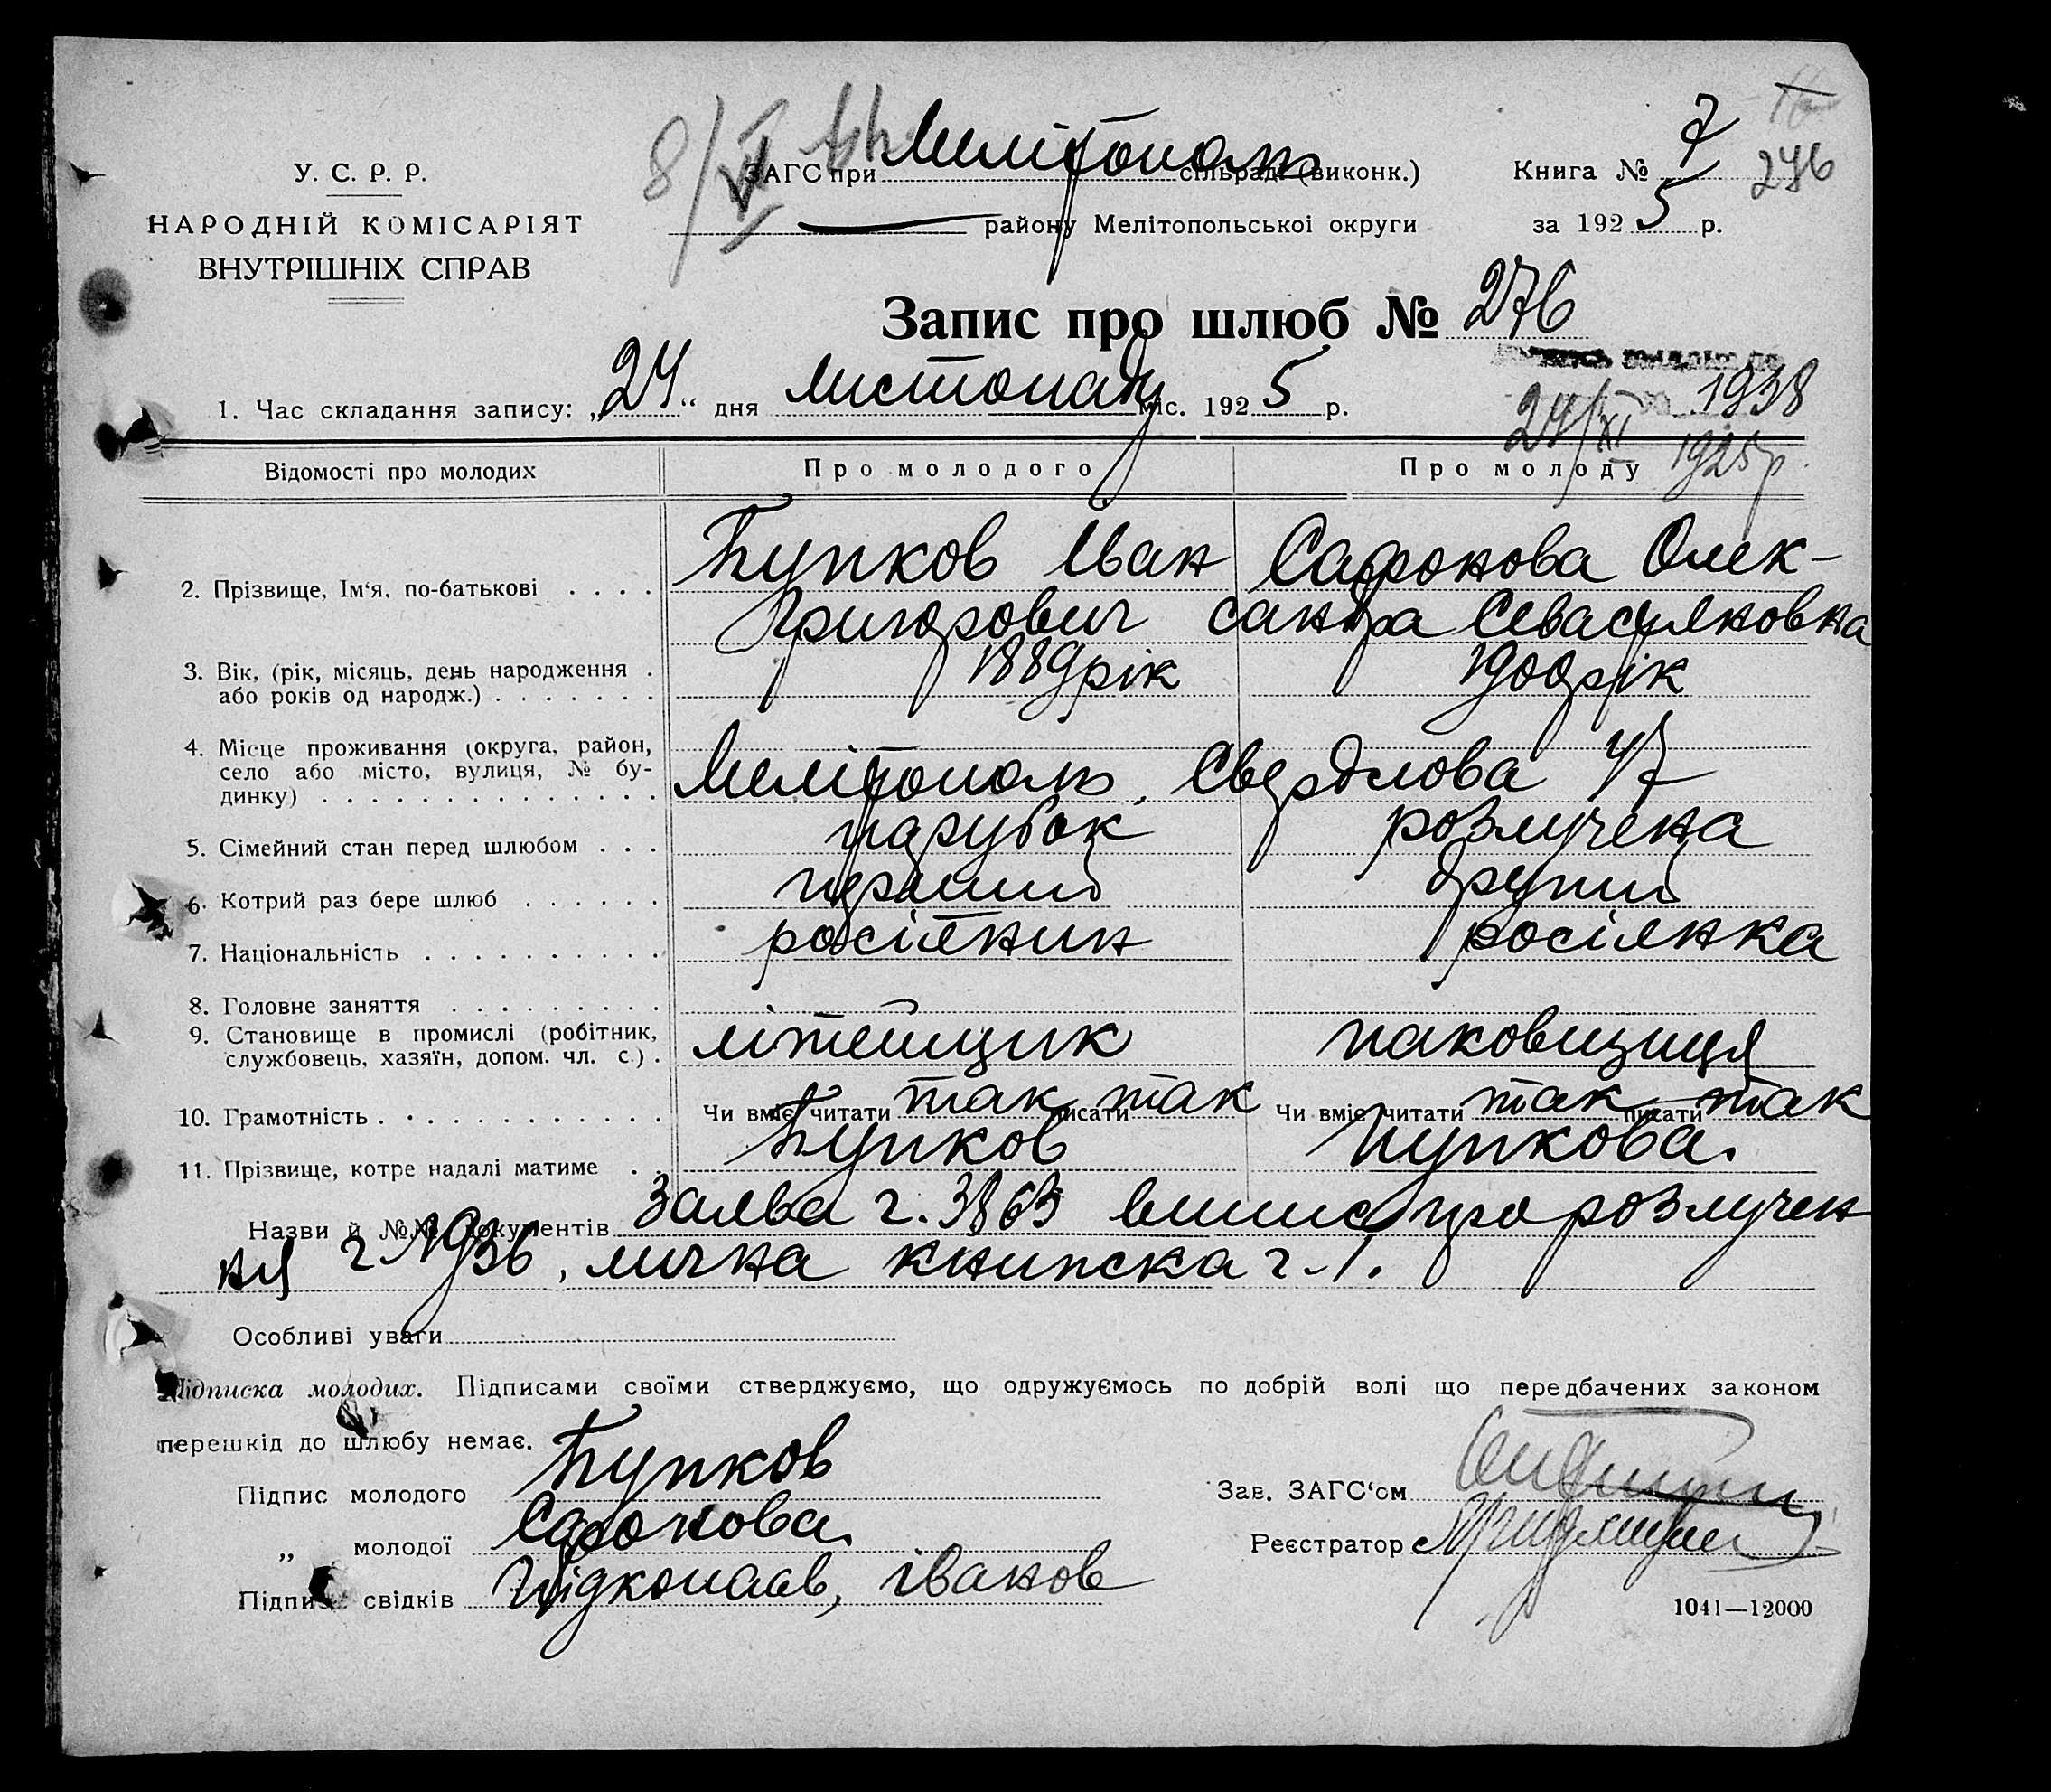 У. С. Р. Р.
НАРОДНІЙ КОМІСАРІЯТ
ВНУТРІШНІХ СПРАВ
8/VI
ЗАГС при Мелітополь сільраді (виконк.)
району Мелітопольської округи
Книга № 7
276
за 1925 р.
Запис про шлюб № 276
1938
24/XI 1925 р.
1. Час складання запису: „24“ дня листопаду міс. 1925 р.
Відомості про молодих Про молодого Про молоду
2. Прізвище, Ім‘я, по-батькові Пупков Іван Сафонова Олек-
Григорович сандра Севастяновна
3. Вік, (рік, місяць, день народження 1889 рік 1900 рік
або років од народж.)
4. Місце проживання (округа, район,
село або місто, вулиця, № бу-
динку) Мелітополь, Свердлова 47
5. Сімейний стан перед шлюбом парубок розлучена
6. Котрий раз бере шлюб перший другий
7. Національність росіянин росіянка
8. Головне заняття
9. Становище в промислі (робітник,
службовець, хазяїн, допом. чл. с.) літейщик паковщиця
10. Грамотність Чи вміє читати так писати так Чи вміє читати так писати так
11. Прізвище, котре надалі матиме Пупков Пупкова.
Назви й №№ документів Заява ч. 3863 випис про розлучен
ня ч 1936, лична книжка ч 1.
Особливі уваги
Підписка молодих. Підписами своїми стверджуємо, що одружуємось по добрій волі що передбачених законом
перешкід до шлюбу немає.
Підпис молодого Пупков
„ молодої Сафонова
Підпис свідків Підкопаєв, Іванов
Зав. ЗАГС‘ом
Реєстратор
1041—12000